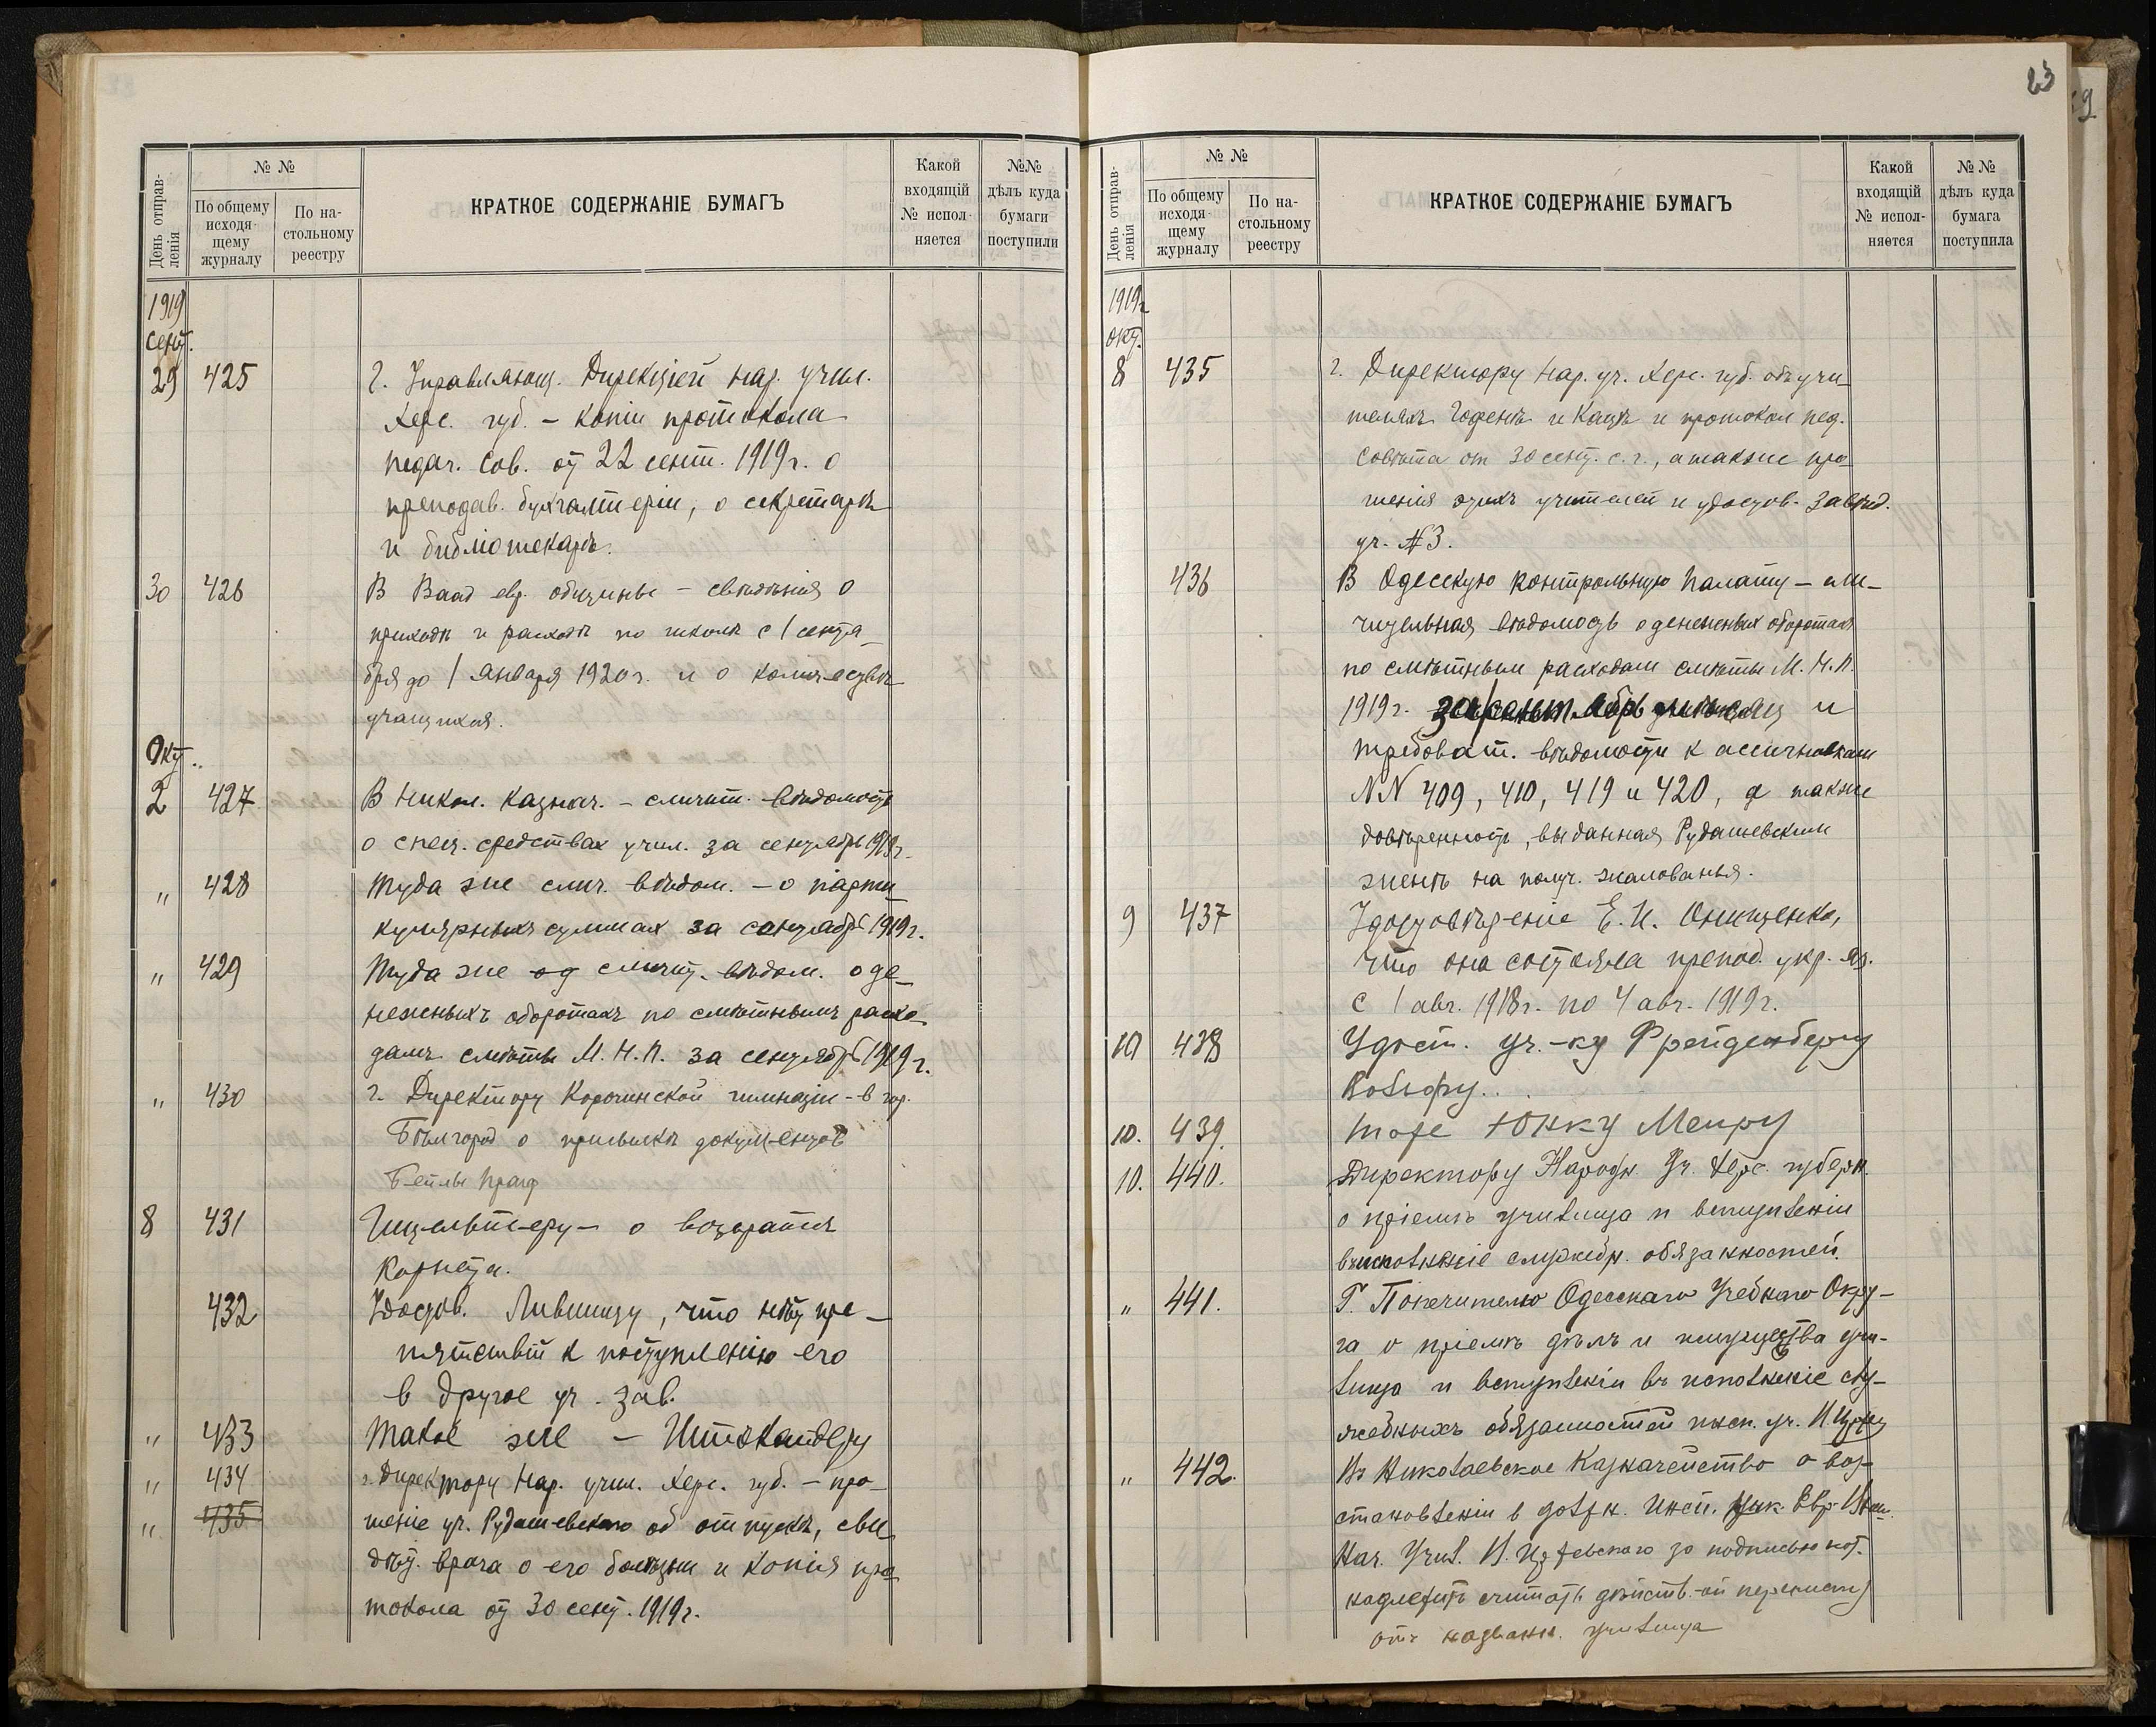 23
День отправ-
ленія
№ №
По общему
исходя-
щему
журналу
По на-
стольному
реестру
КРАТКОЕ СОДЕРЖАНІЕ БУМАГЪ
Какой
входящій
№ испол-
няется
№№
дѣлъ куда
бумаги
поступили
1919
сент.
29 425 г. Управляющ. Дирекціей нар. учил.
Херс. губ. – копіи протокола
педаг. Сов. от 22 сент. 1919 г. о
преподав. бухгалтеріи, о секретарѣ
и библіотекарѣ.
30 426 В Ваад евр. общины – свѣдѣнія о
приходѣ и расходѣ по школѣ с 1 сентя-
бря до 1 января 1920 г. и о количествѣ
учащихся.
Окт.
2 427 В Никол. Казнач. – сличит. вѣдомость
о спец. средствах учил. за сентябрь 1919 г.
" 428 Туда же слич. вѣдом. – о парти-
кулярныхъ суммах за сентябрь 1919 г.
" 429 Туда же сличит. вѣдом. о де-
нежныхъ оборотахъ по смѣтнымъ расхо-
дамъ смѣты М. Н. П. за сентябрь 1919 г.
" 430 г. Директору Корочинской гимназіи – в гор.
Бѣлгород о присылкѣ документов
Бейлы
8 431 о возвратѣ
корнета.
432 Удостов. Лившицу, что нѣт пре-
пятствій к поступленію его
в другое уч. зав.
" 433 Такое же –
" 434 г. Директору Нар. учил. Херс. губ. – про-
" 435 шеніе уч. Рудашевскаго об отпускѣ, сви-
дѣт. врача о его болѣзни и копія про-
токола от 30 сент. 1919 г.
День отправ-
ленія
№ №
По общему
исходя-
щему
журналу
По на-
стольному
реестру
КРАТКОЕ СОДЕРЖАНІЕ БУМАГЪ
Какой
входящій
№ испол-
няется
№ №
дѣлъ куда
бумага
поступила
1919 г.
окт.
8 435 г. Директору Нар. уч. Херс. губ. объ учи-
теляхъ Гофенъ и Кацъ и протокол пед.
Совѣта от 30 сент. с. г., а также про-
шенія этихъ учителей и удостов. завѣд.
уч. №3.
436 В Одесскую контрольную палату – сли-
чительная вѣдомость о денежных оборотах
по смѣтным расходам смѣты М. Н. П.
1919 г. за сентябрь и
требоват. вѣдомости к ассигновкам
NN 409, 410, 419 и 420, а также
довѣренность, выданная Рудашевским
женѣ на получ. жалованья.
9 437 Удостовѣреніе Е. И. Онищенко,
что она состояла препод. укр. яз.
с 1 авг. 1918 г. по 4 авг. 1919 г.
10 438 Удост. уч.-ку Фрейденбергу
10. 439. тоже Юкку Меиру
10. 440. Директору Народн. Уч. Херс. губерн.
о пріемѣ училища и вступленіи
в исполненіе служебн. обязанностей.
" 441. Г. Попечителю Одесскаго Учебнаго Окру-
га о пріемѣ дѣлъ и имущества учи-
лища и вступленіи въ исполненіе слу-
жебныхъ обязанностей инсп. уч.
" 442. Въ Николаевское Казначейство о воз-
становленіи в должн. Инсп. Ник. Евр.
Нач. Учил. за подписью кот.
надлежитъ считать дѣйств-ой переписку
отъ названн. училища